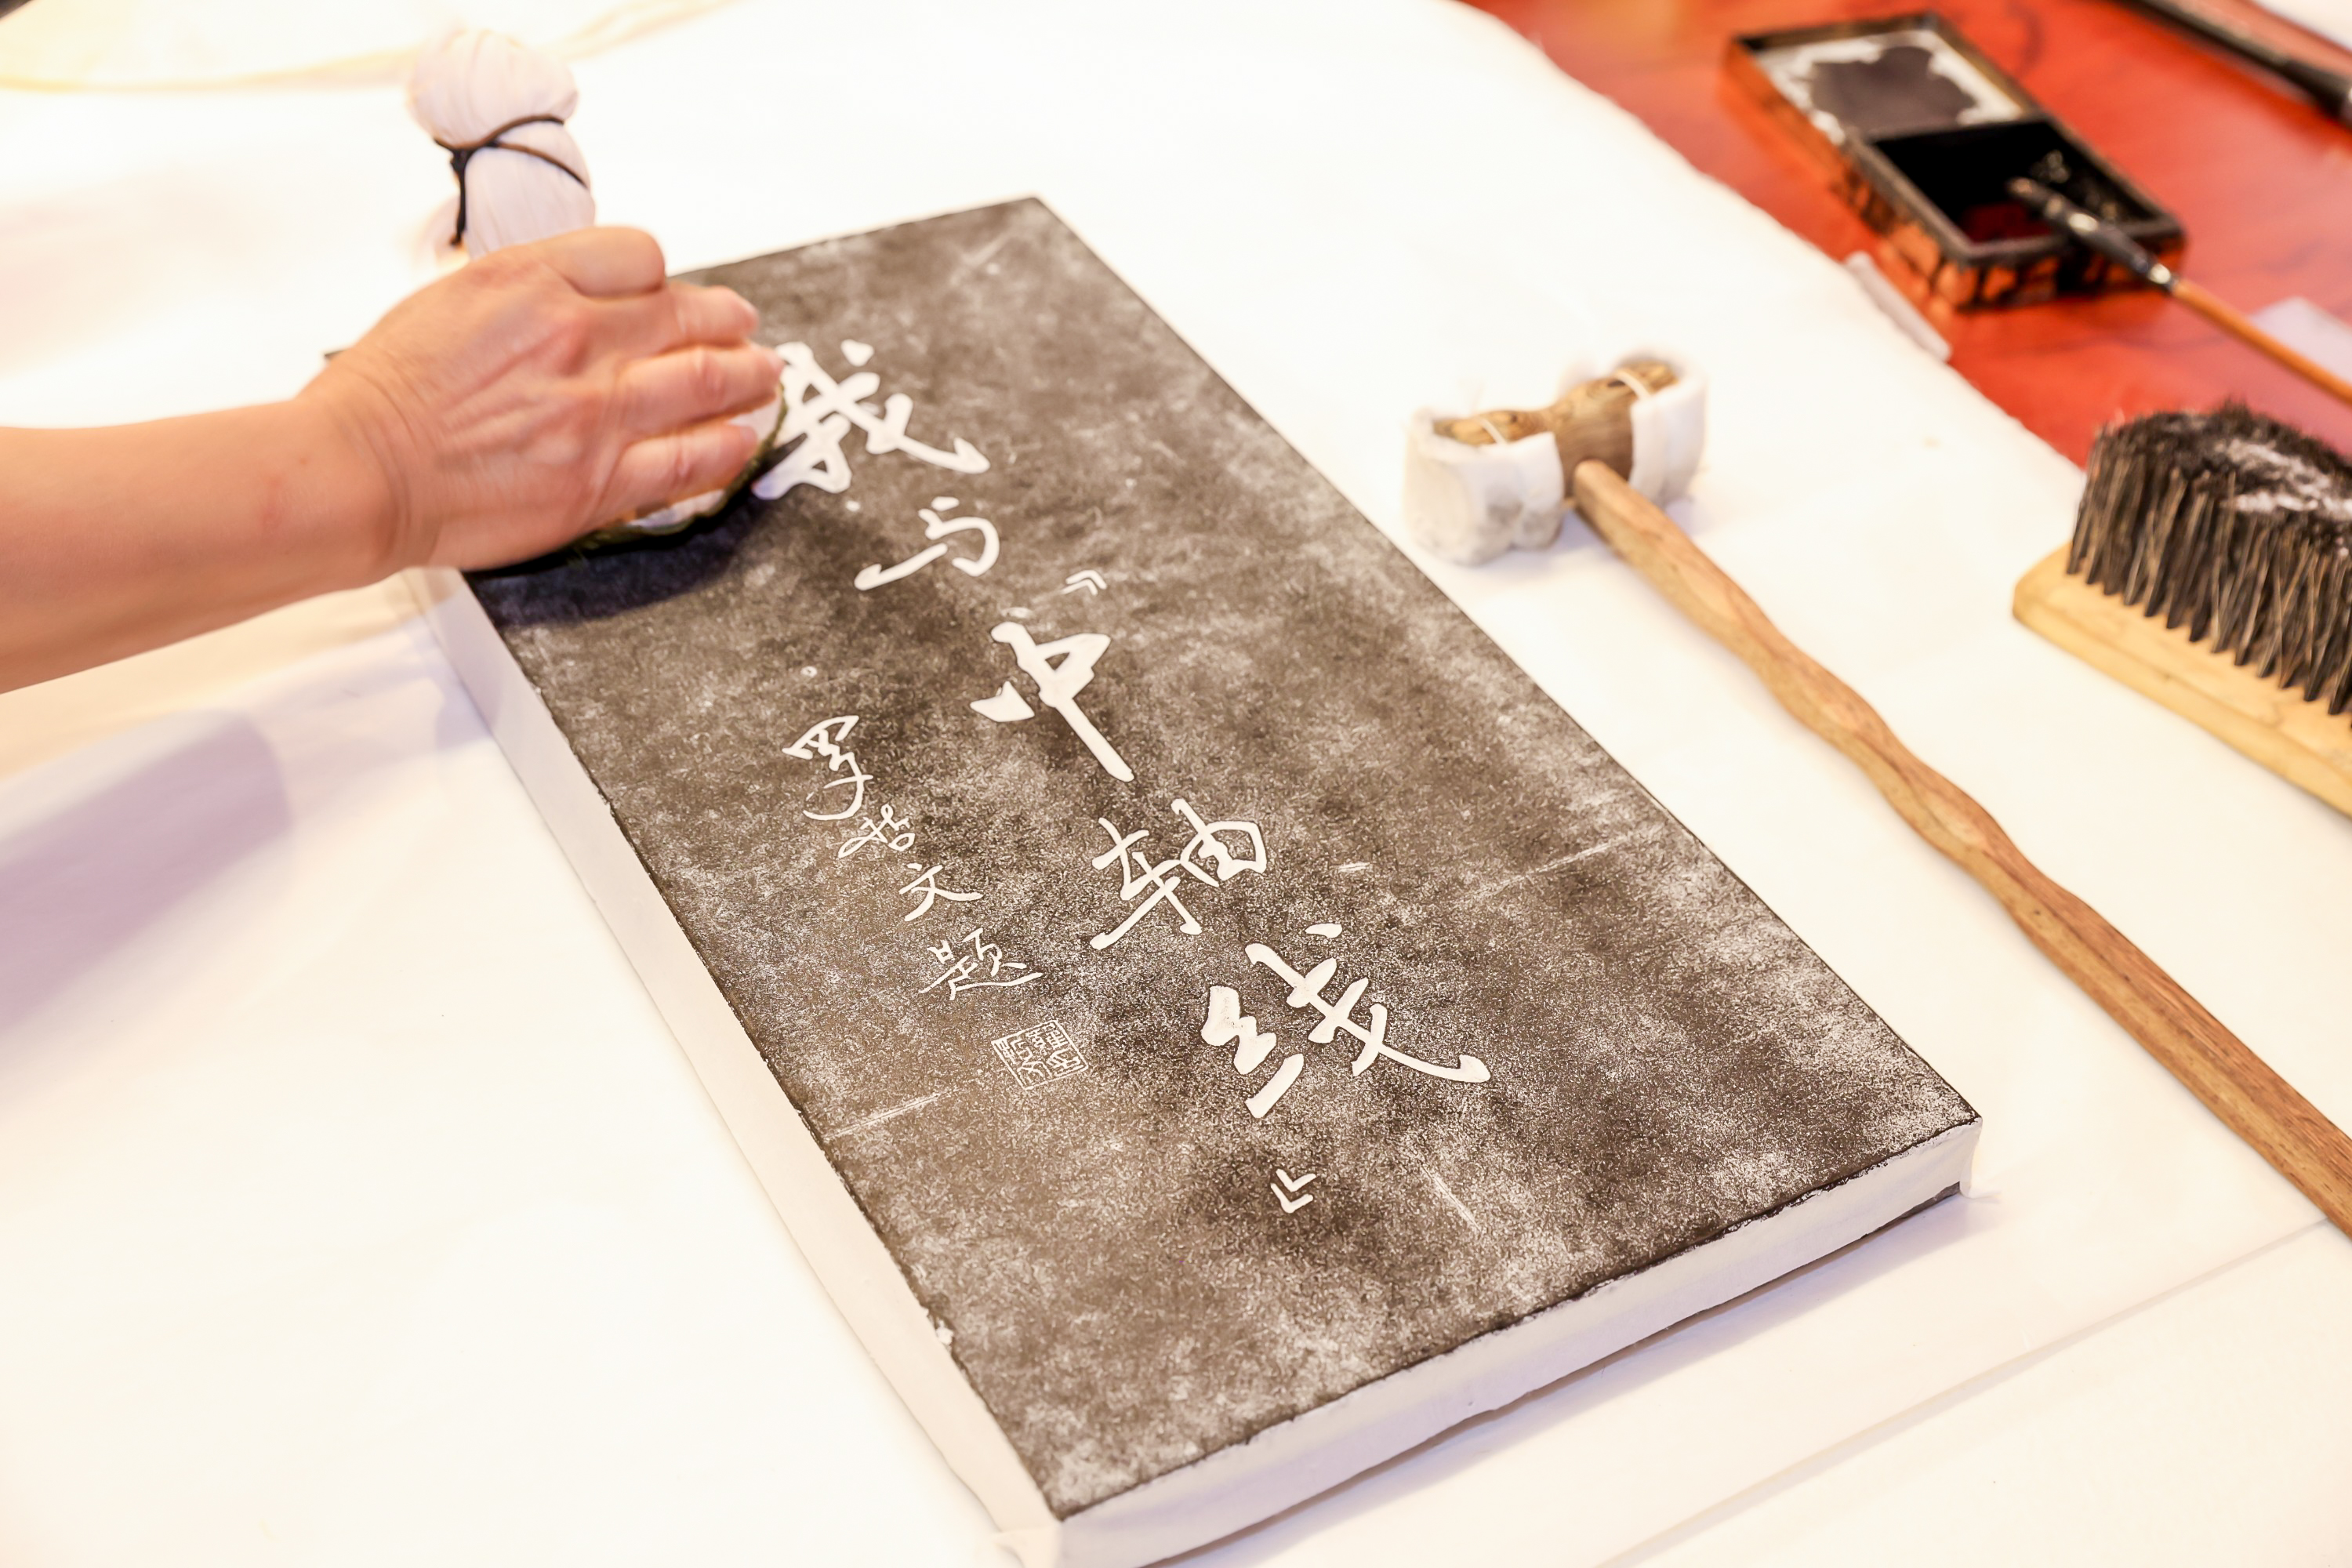 我与《中轴线》
罗哲文题